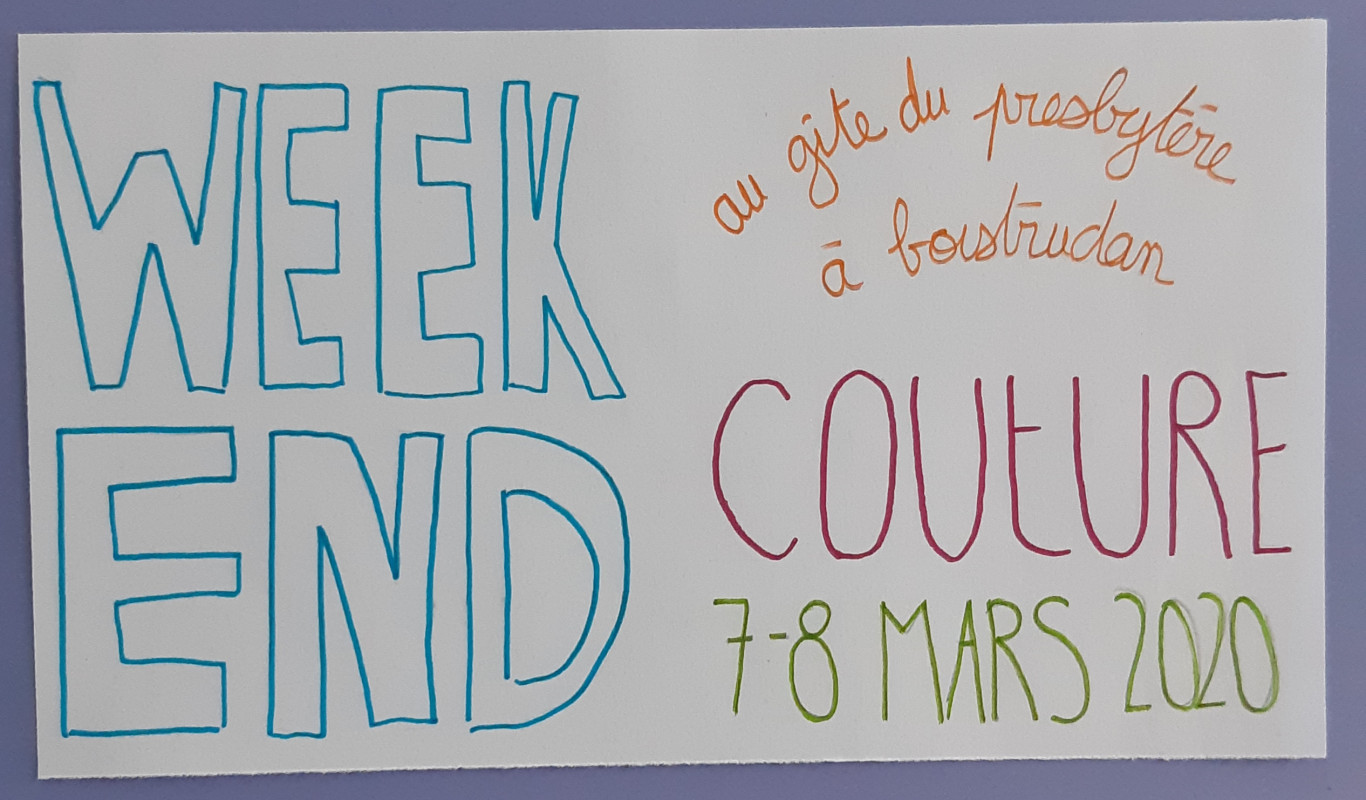 WEEK
END
au gite du presbytère
à boistrudan
COUTURE
7-8 MARS 2020